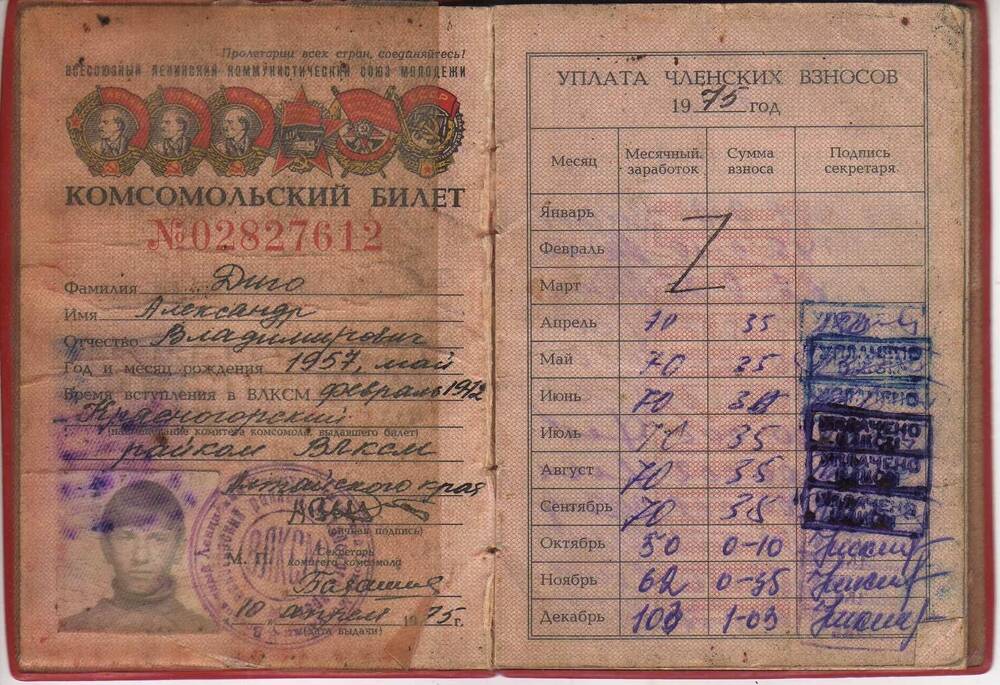 Пролетарии всех стран, соединяйтесь!
ВСЕСОЮЗНЫЙ ЛЕНИНСКИЙ КОММУНИСТИЧЕСКИЙ СОЮЗ МОЛОДЕЖИ
КОМСОМОЛЬСКИЙ БИЛЕТ
№02827612
Фамилия
Имя Александр
Отчество Владимирович
Год и месяц рождения 1957, май
Время вступления в ВЛКСМ февраль 1972
Красногорский
(наименование комитета комсомола, выдавшего билет)
райком ВЛКСМ
Алтайского края
(личная подпись)
М. П. Секретарь
комитета комсомола
10 апреля 1975 г.
(дата выдачи)
УПЛАТА ЧЛЕНСКИХ ВЗНОСОВ
1975 год
Месяц Месячный заработок Сумма взноса Подпись секретаря
Январь
Февраль
Март
Апрель 70 35
Май 70 35 УПЛАЧЕНО ВЛКСМ
Июнь 70 35 УПЛАЧЕНО
Июль 70 35 УПЛАЧЕНО ВЛКСМ
Август 70 35 УПЛАЧЕНО ВЛКСМ
Сентябрь 70 35 УПЛАЧЕНО ВЛКСМ
Октябрь 50 0-10
Ноябрь 62 0-35
Декабрь 103 1-03